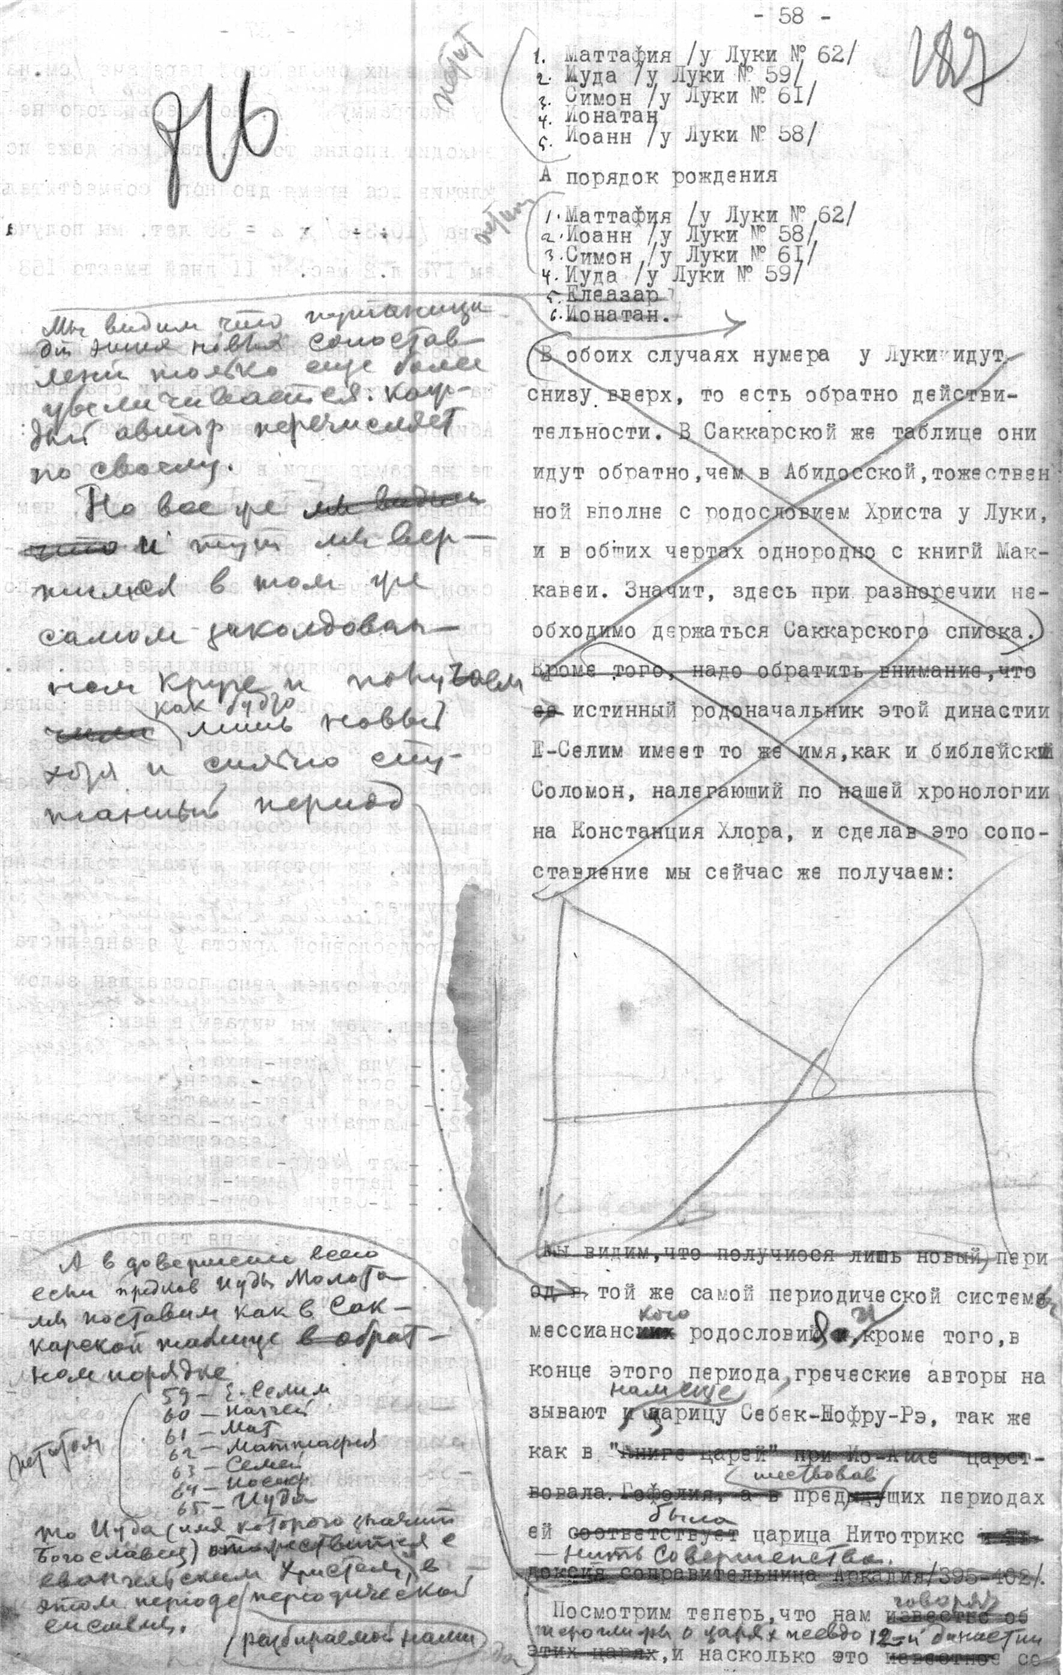 - 58 -
187
916
петит
1. Маттафия /у Луки № 62/
2. Иуда /у Луки № 59/
3. Симон /у Луки № 61/
4. Ионатан
5. Иоанн /у Луки № 58/
А порядок рождения
петит
1. Маттафия /у Луки № 62/
2. Иоанн /у Луки № 58/
3. Симон /у Луки № 61/
4. Иуда /у Луки № 59/
5. Елеазар
6. Ионатан.
Мы видим что путаница
от этих новых сопостав-
лений только еще более
увеличивается: каж-
дый автор перечисляет
по своему.
Но все же мы видим
что и тут мы вер-
тимся в том же
самом заколдован-
ном круге и получаем
как будто
лишь новый
хотя и сильно спу-
танный период
В обоих случаях нумера у Луки идут
снизу вверх, то есть обратно действи-
тельности. В Саккарской же таблице они
идут обратно, чем в Абидосской, тожествен
ной вполне с родословием Христа у Луки,
и в общих чертах однородно с книгй Мак-
кавеи. Значит, здесь при разноречии не-
обходимо держаться Саккарского списка.)
Кроме того, надо обратить внимание, что
истинный родоначальник этой династии
Е-Селим имеет то же имя, как и библейский
Соломон, налегающий по нашей хронологии
на Констанция Хлора, и сделав это сопо-
ставление мы сейчас же получаем:
Мы видим, что получиося лишь новый пери
од в той же самой периодической системе
кого
мессианских родословий, и, кроме того, в
конце этого периода, греческие авторы на
нам еще
зывают и царицу Себек-Нофру-Рэ, так же
как в "Книге Царей" при Ио-Аше царст-
шествовав
вовала Гофолия, а в предыдущих периодах
была
ей соответствует царица Нитотрикс
— Нить Совершенства.
доксия соправительница Аркадия/395-402/.
говорят
Посмотрим теперь, что нам известно об
иероглифы о царях псевдо 12-й династии
этих царях, и насколько это известное со
А в довершение всего
если предков Иуды Молота
мы поставим как в Сак-
карской таблице в обрат-
ном порядке
петитом
59 — Е-Селим
60 — Наггей
61 — Мат
62 — Маттафия
63 — Семей
64 — Иосиф
65 — Иуда
то Иуда (имя которого значит
Богославец) отожествится с
евангельским Христом, в
этом периоде периодической
системы.
разбираемой нами